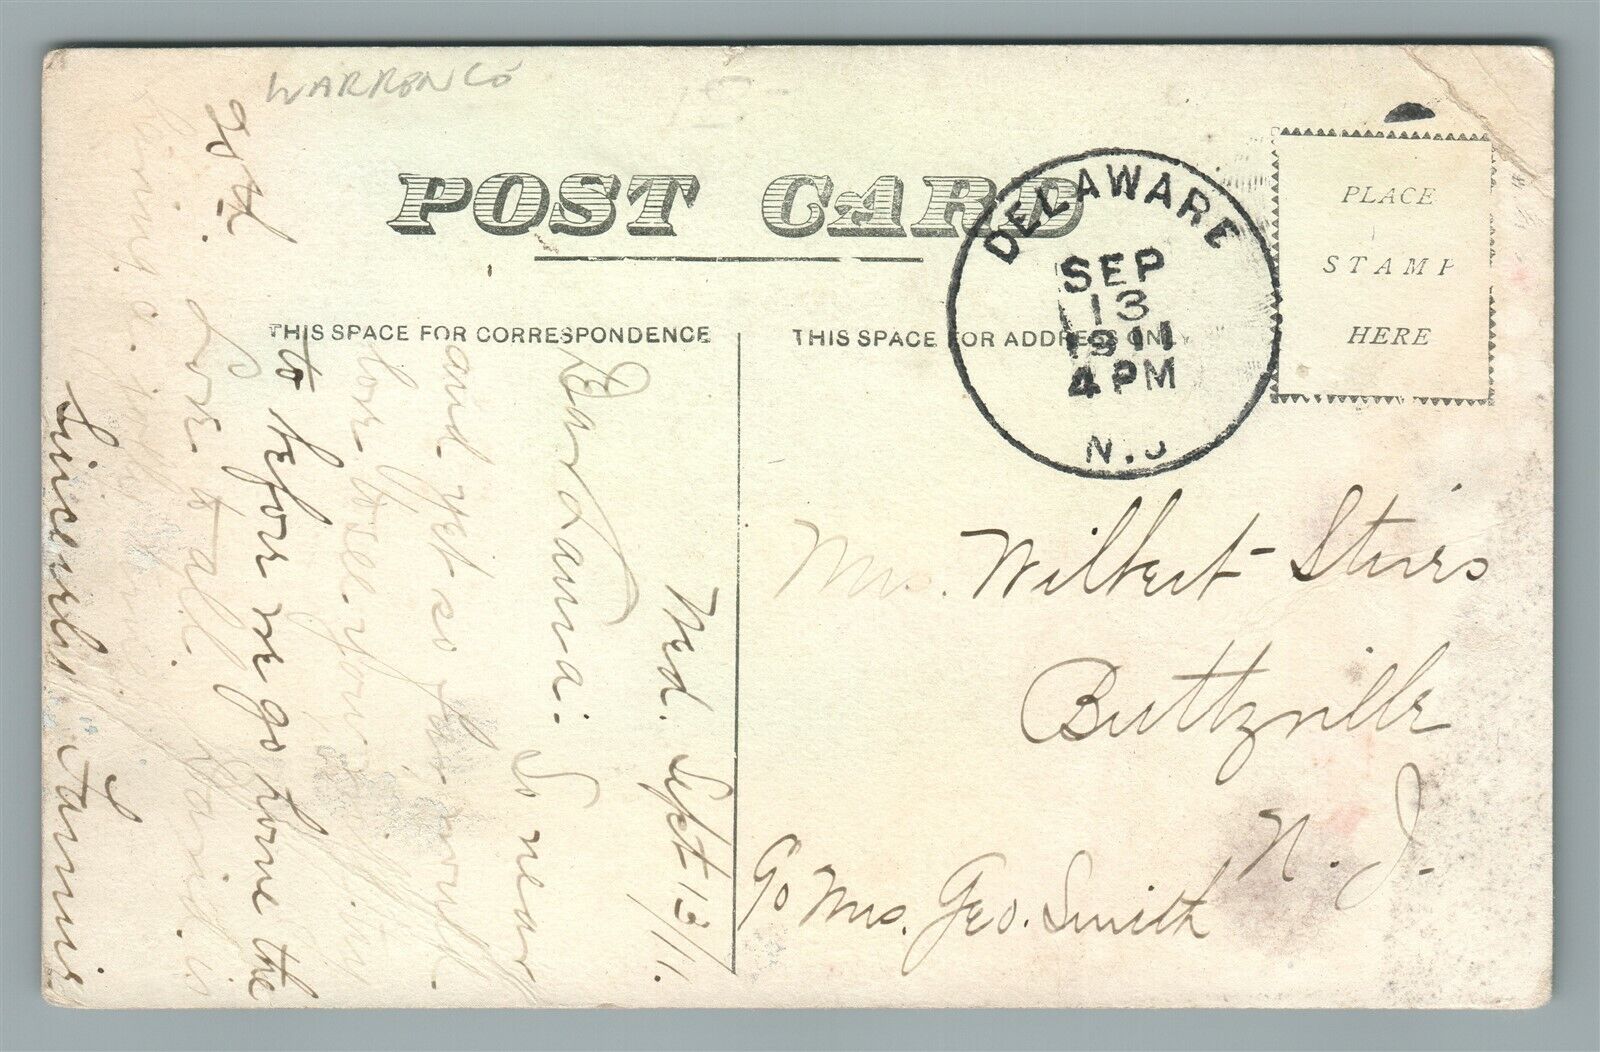 WARREN CO
POST CARD
THIS SPACE FOR CORRESPONDENCE
THIS SPACE FOR ADDRESS ONLY
PLACE
STAMP
HERE
DELAWARE
SEP
13
1911
4 PM
N.J
Mrs. Wilbert Stires
Buttzville
N. J.
c/o Mrs. Geo. Smith
Wed. Sept 13/11.
Dear Laura:
So near
and yet so far. would
love to see you
to before we go home the
20th. Love to all.
Sincerely Fannie